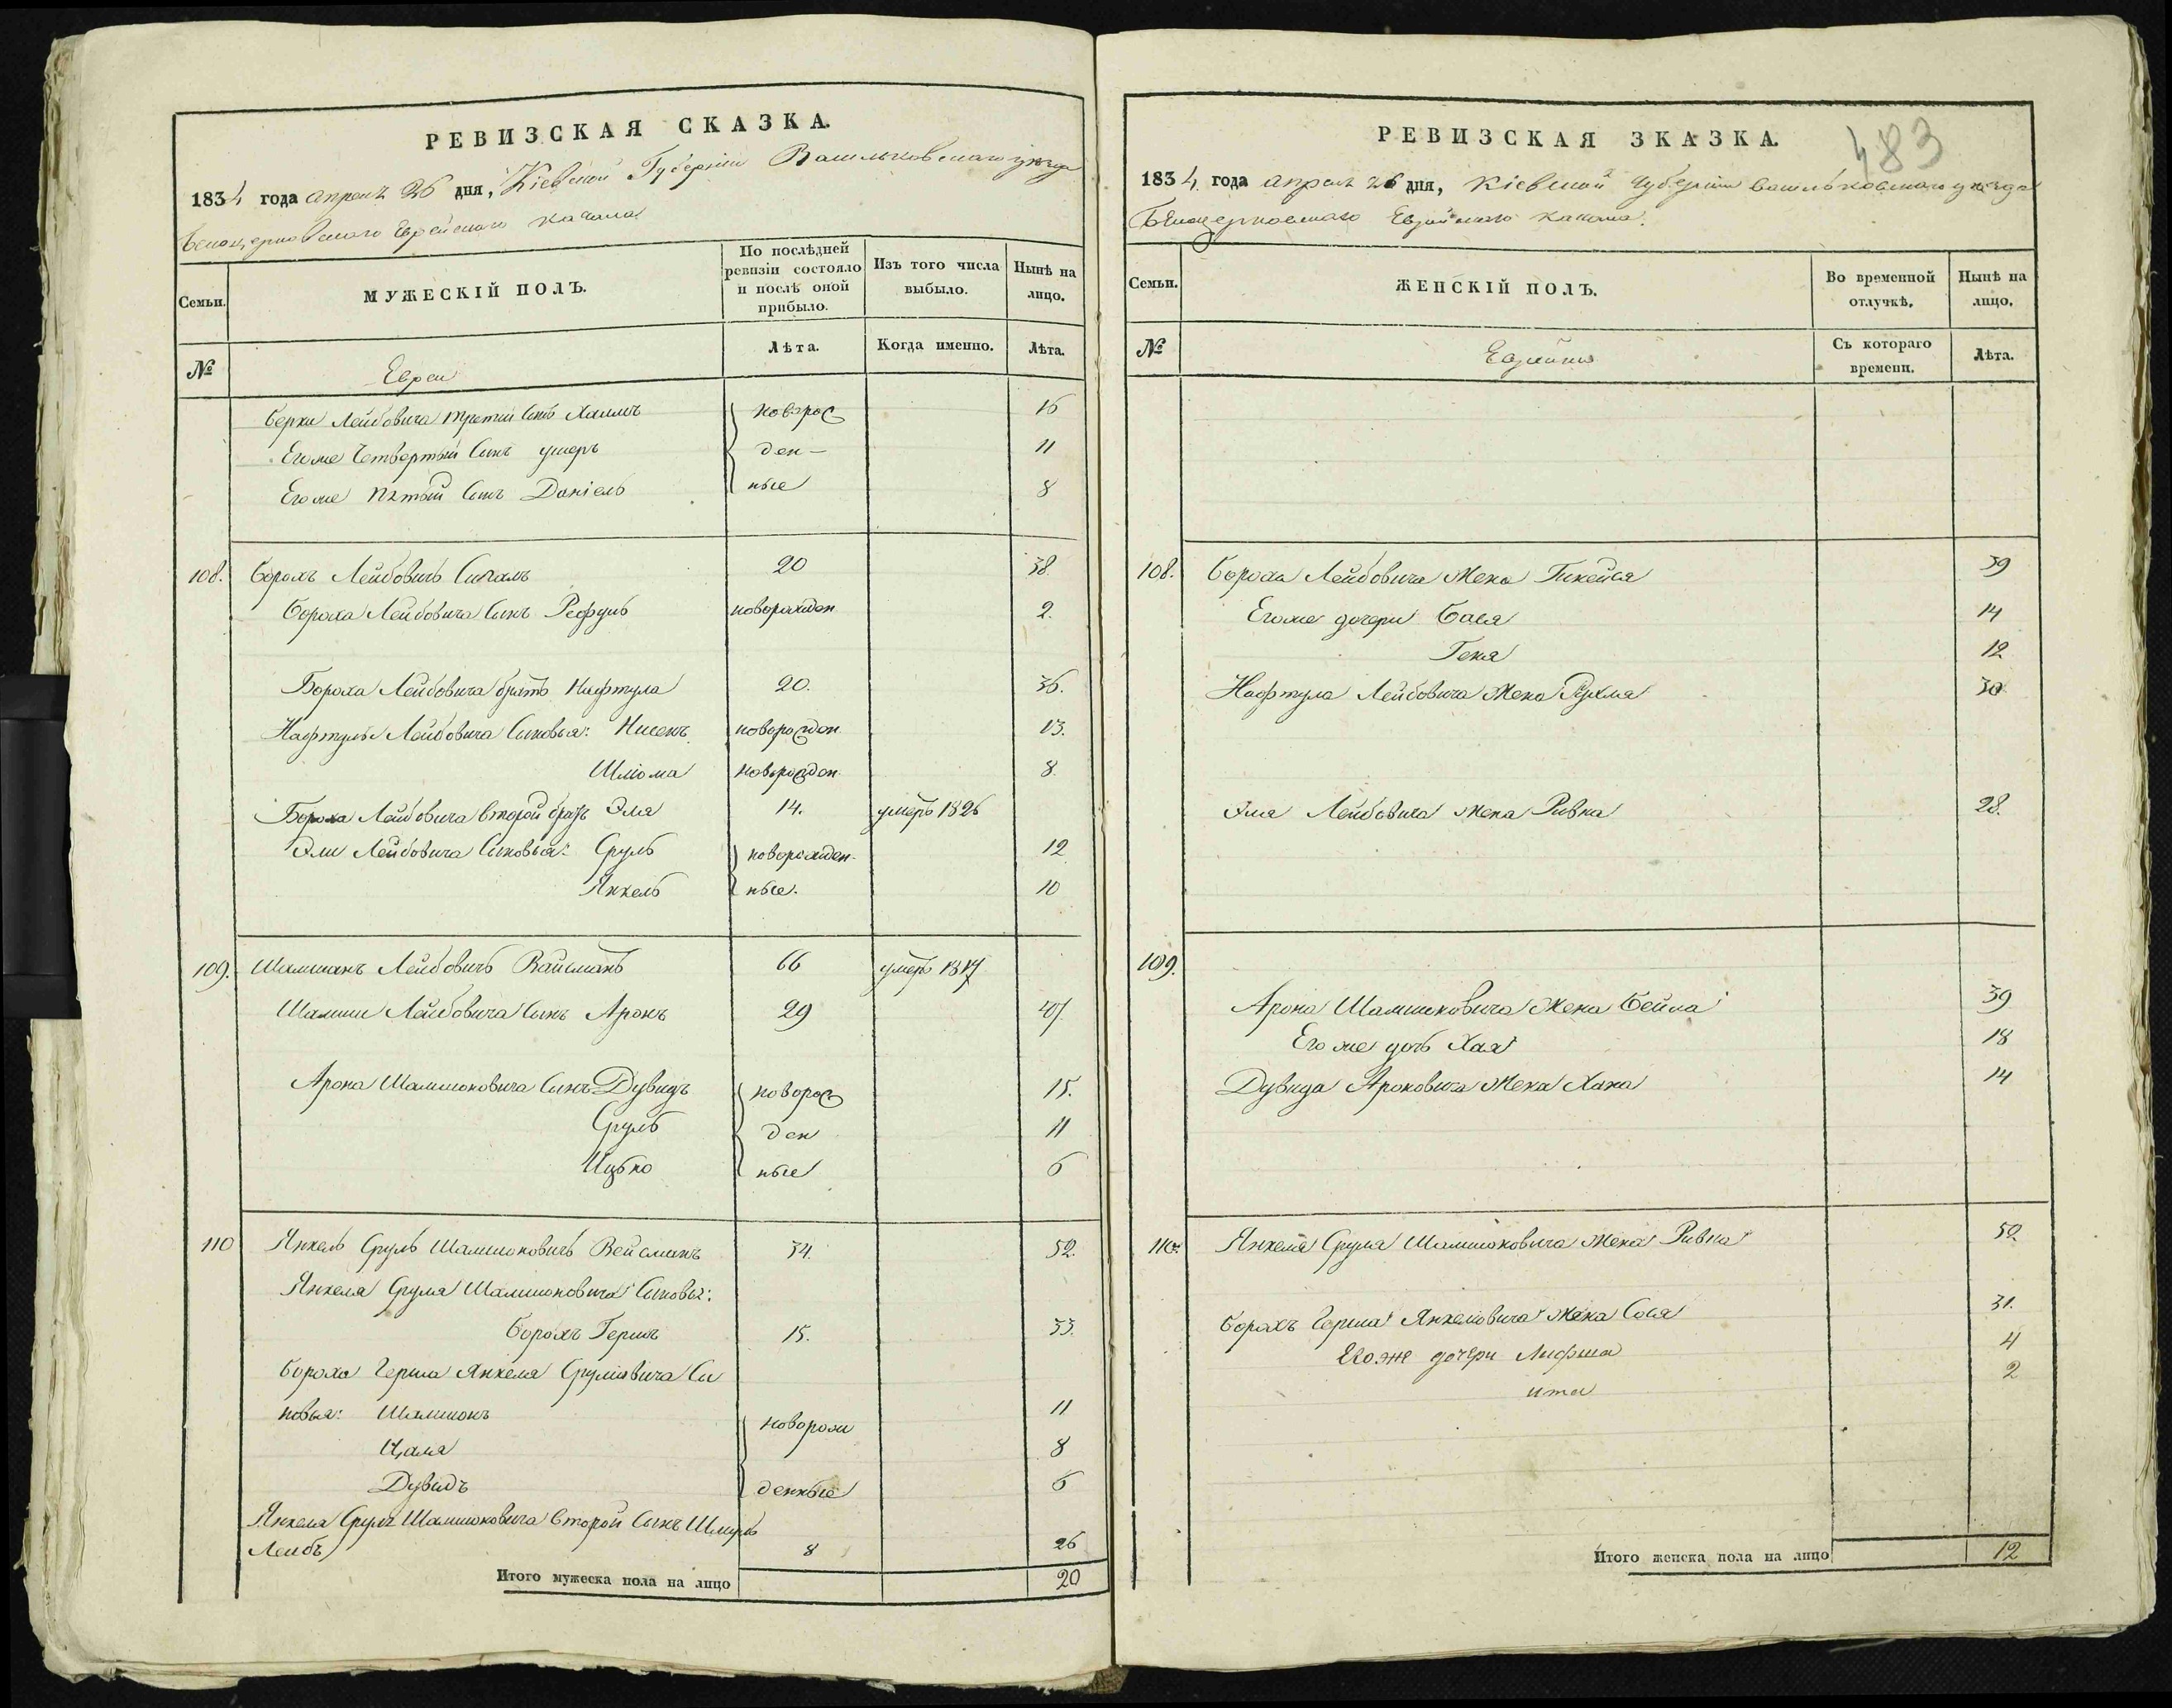 РЕВИЗСКАЯ СКАЗКА.
1834 года апреля 26 дня, Кіевской Губерніи Васильковскаго уѣзда
Бѣлоцерковскаго Еврейскаго кагала
Семьи.
МУЖЕСКІЙ ПОЛЪ.
По послѣдней ревизіи состояло и послѣ оной прибыло.
Изъ того числа выбыло.
Нынѣ на лицо.
№
Евреи
Лѣта.
Когда именно.
Лѣта.
Берки Лейбовича третій Сынъ Хаимъ новорос 16
Егоже Четвертый Сынъ ден- 11
Егоже пятый Сынъ Даніель ные 8
108. Борохъ Лейбовичъ 20 38
Бороха Лейбовича Сынъ Рефуль новорожден 2.
Бороха Лейбовича братъ Нафтула 20. 36.
Нафтулы Лейбовича Сыновья: Нисенъ новорожден. 13.
Шліома новорожден. 8.
Бороха Лейбовича второй братъ Эля 14. умеръ 1826
Эли Лейбовича Сыновья: Сруль новорожден- 12
Янкель ные. 10
109. Шамшонъ Лейбовичъ Вайсманъ 66 умеръ 18
Шамши Лейбовича Сынъ Аронъ 29 47
Арона Шамшоновича Сынъ Дувидъ новорос 15.
Сруль ден 11
Ицько ные 6
110 Янкель Сруль Шамшоновичъ Вейсманъ 34. 52.
Янкеля Сруля Шамшоновича Сыновья:
Борохъ Гершъ 15. 33.
Бороха Герша Янкеля Срулювича Сы
новья: Шамшонъ 11
новорож
Цаля 8
Дувидъ денные 6
Янкеля Сруля Шамшоновича Второй Сынъ Шмуль
Лейбъ 8 26
Итого мужеска пола на лицо 20
РЕВИЗСКАЯ ЗКАЗКА.
483
1834 года апреля 26 дня, Кіевской Губерніи Васильковскаго уѣзда
Бѣлоцерковскаго Еврейскаго Кагала.
Семьи.
ЖЕНСКІЙ ПОЛЪ.
Во временной отлучкѣ.
Нынѣ на лицо.
№
Еврейки
Съ котораго времени.
Лѣта.
108. Бороха Лейбовича Жена 39
Егоже дочери Бася 14
Геня 12
Нафтула Лейбовича Жена Рухля 30
Эля Лейбовича Жена Ривка 28.
109.
Арона Шамшоновича Жена Бейла 39
Егоже дочь Хая 18
Дувида Ароновича Жена Хана 14
110. Янкеля Сруля Шамшоновича Жена Ривка 52
Борохъ Герша Янкелювича Жена Сося 31.
Егоже дочери Лифша 4
ита 2
Итого женска пола на лицо 12